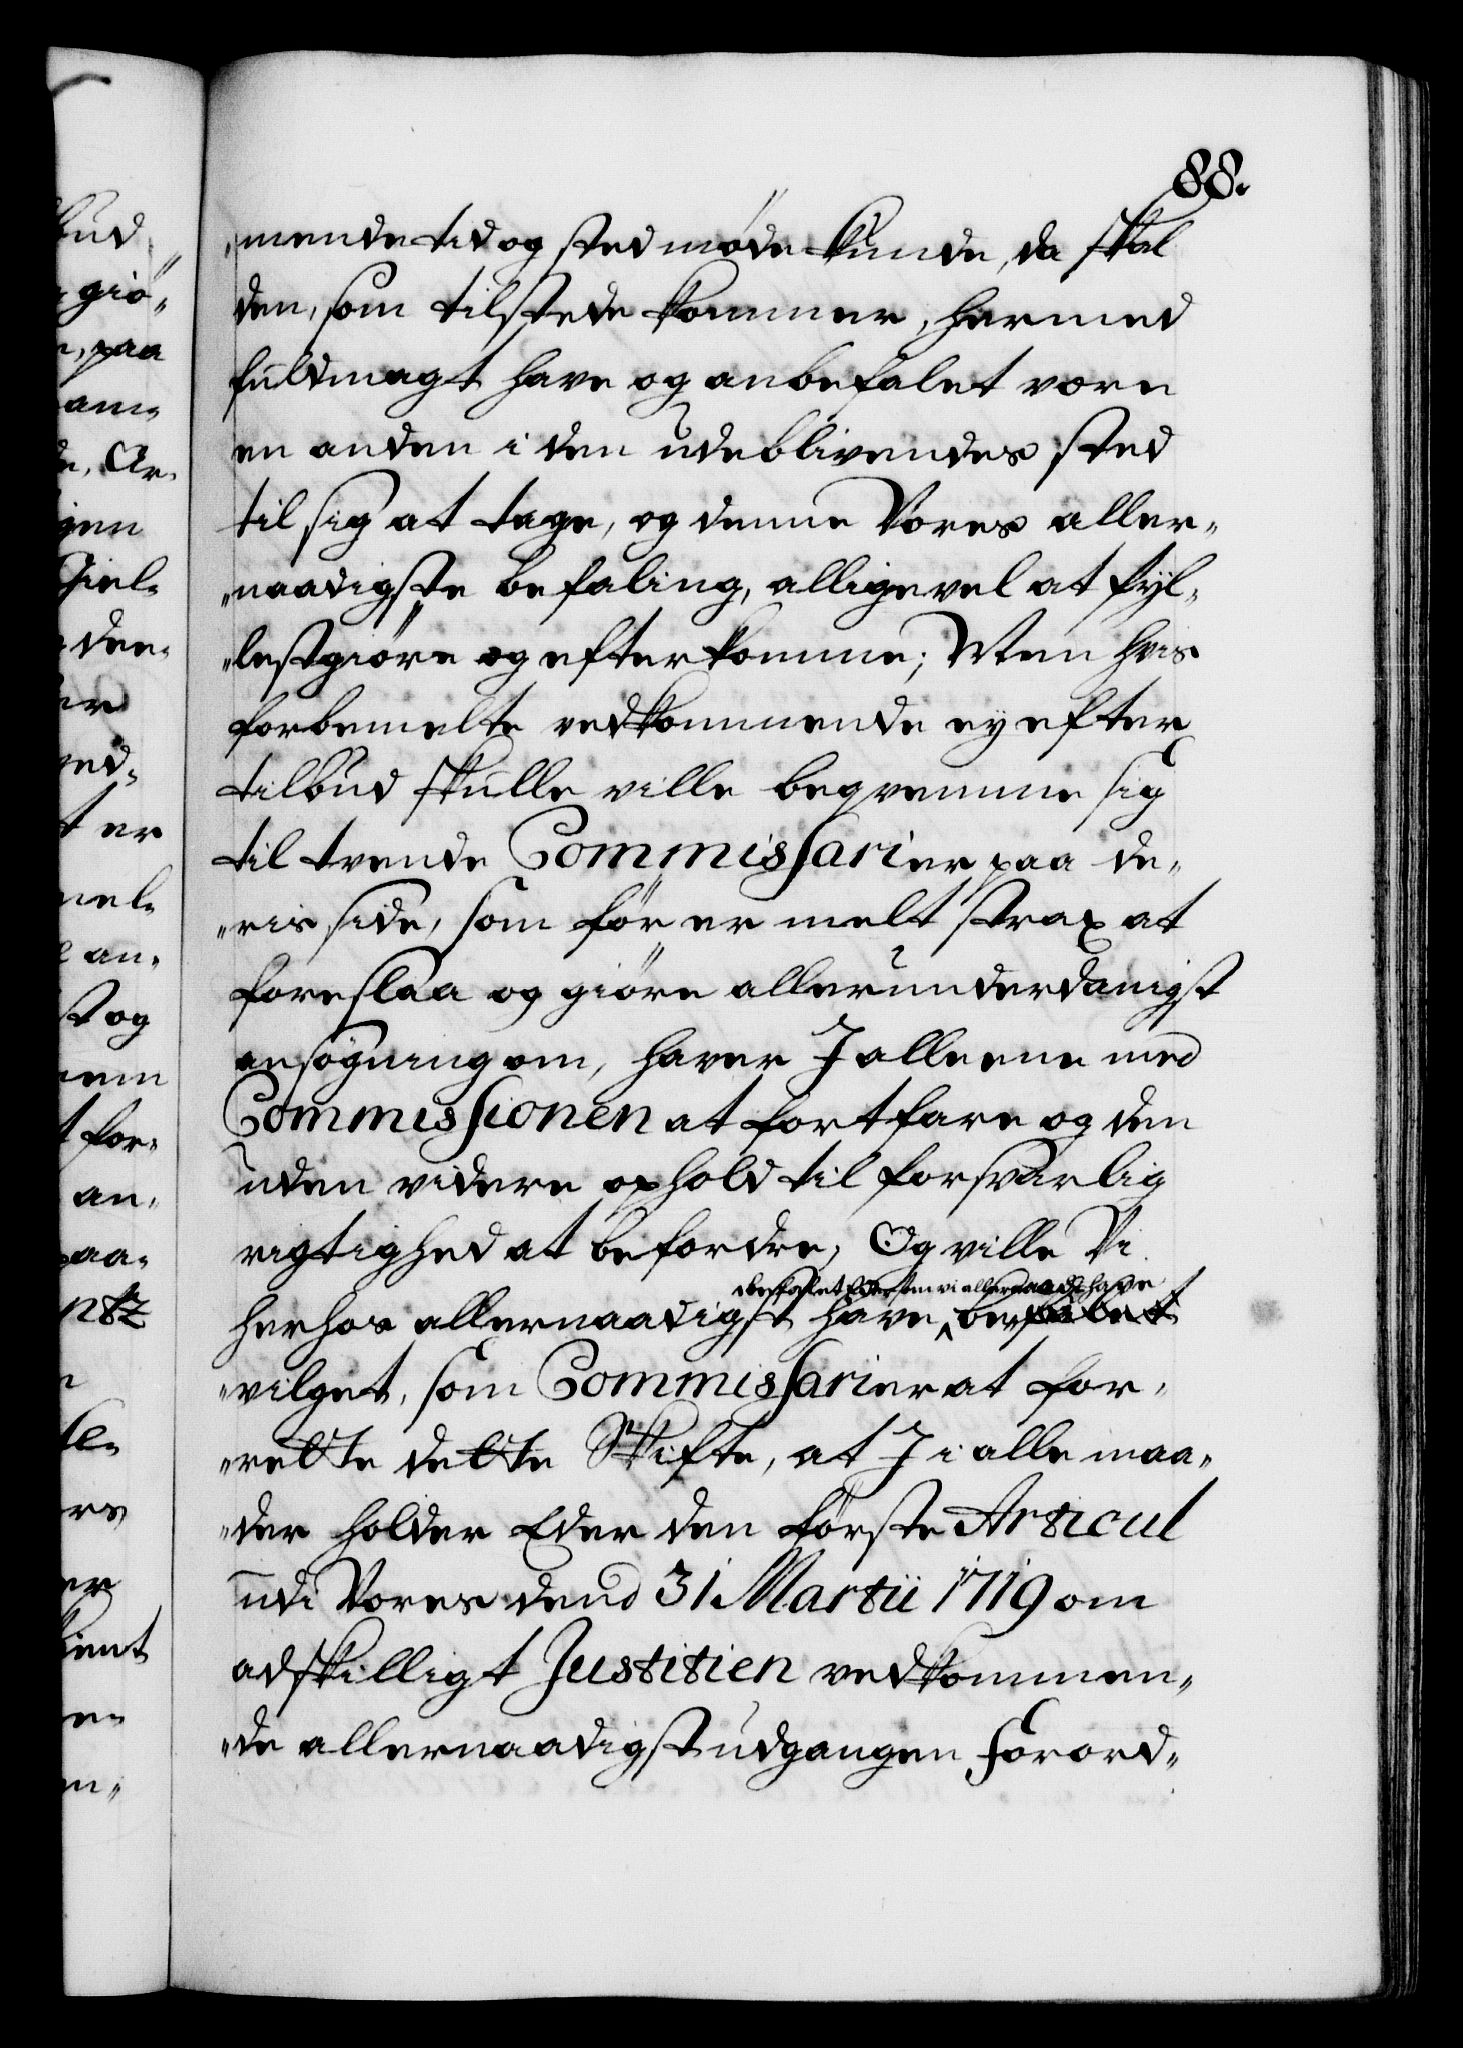 88.
"mende tid og sted møde kunde, da skal
den, som tilstede kommer, hermed
fuldmagt have og anbefalet være
en anden i den udeblivendes sted
til sig at tage, og denne Vores aller-
"naadigste befaling, alligevel at fyl-
"lestgiøre og efterkomme; Men hvis
forbemelte vedkommende ey efter
tilbud skulle ville beqvemme sig
til tvende Commissarier paa de-
"ris side, som før er melt strax at
foreslaa og giøre allerunderdanigst
ansøgning om, haver I alleene med
Commissionen at fortfare og den
uden videre ophold til forsvarlig
rigtighed at befordre; Og ville Vi
befalet Eder som vi allernaadt have
herhos allernaadigst have be
"vilget, som Commissarier at for-
"rette dette Skifte, at I i alle maa-
"der holder Eder den første Articul
udi Vores dend 31 Martii 1719 om
adskilligt Justitien vedkommen-
"de allernaadigst udgangen Forord-